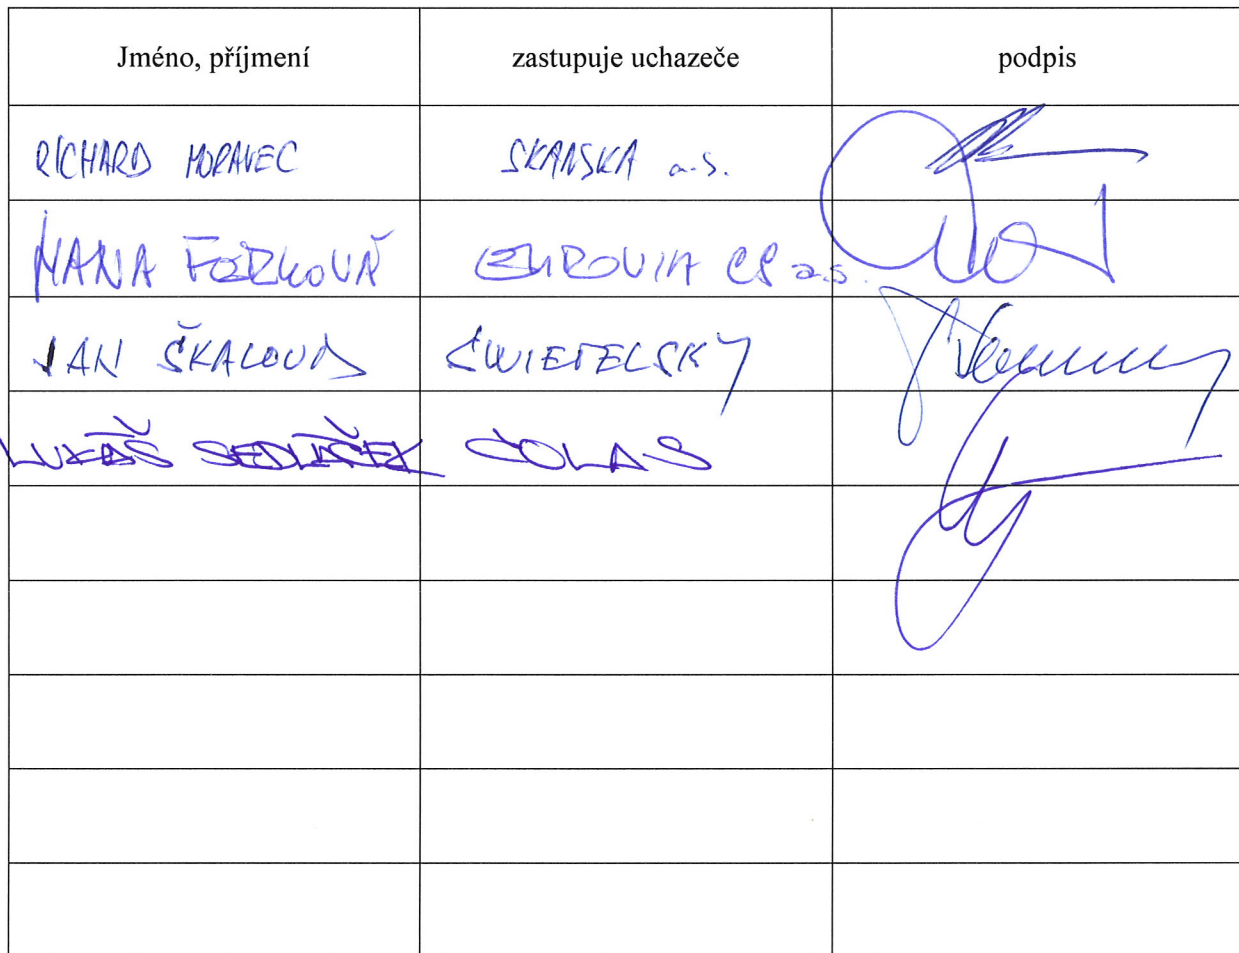 Jméno, příjmení zastupuje uchazeče podpis
RICHARD MORAVEC SKANSKA a.s.
HANA EUROVIA CS a.s.
JAN ŠKALOUD SWIETELSKY
LUKÁŠ SEDLÁČEK COLAS